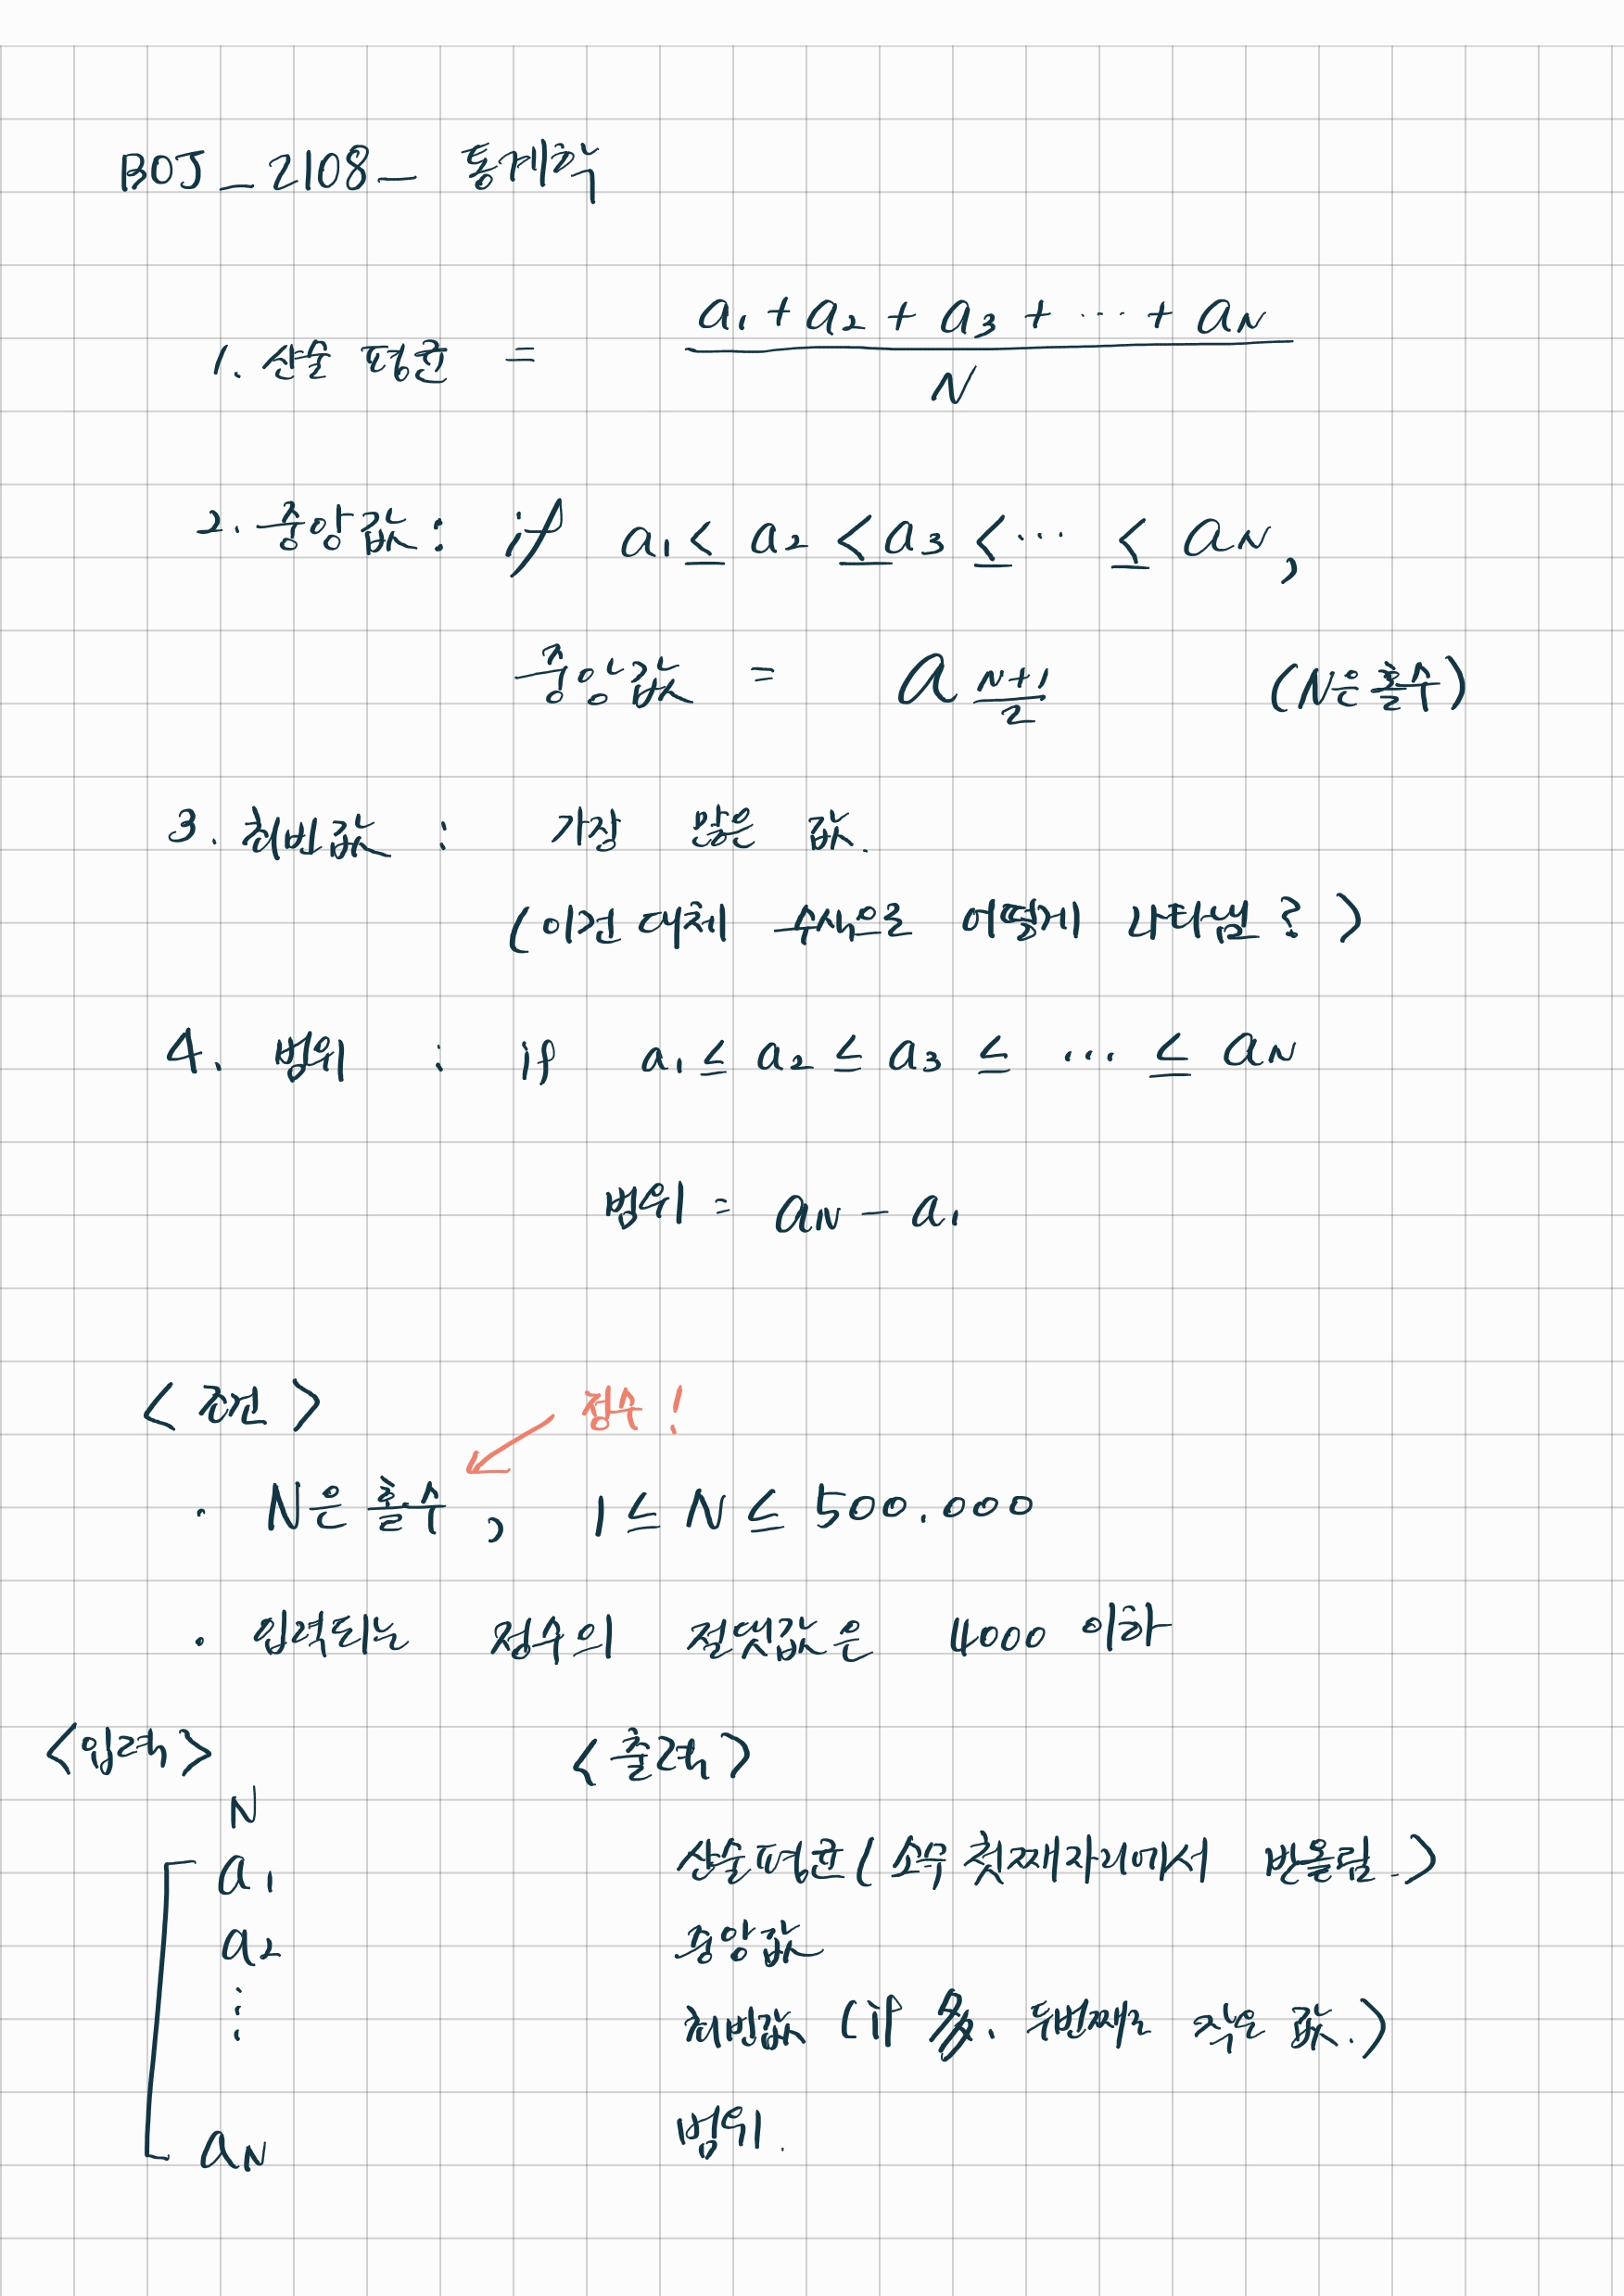 BOJ_2108_ 통계학
1. 산술 평균 = (a₁ + a₂ + a₃ + ⋯ + a_N) / N
2. 중앙값 : if a₁ ≤ a₂ ≤ a₃ ≤ ⋯ ≤ a_N,
중앙값 = a_(N+1)/2 (N은 홀수)
3. 최빈값 : 가장 많은 값.
(이건 대체 수식으로 어떻게 나타냄?)
4. 범위 : if a₁ ≤ a₂ ≤ a₃ ≤ ⋯ ≤ a_N
범위 = a_N - a₁
<조건>
정수!
· N은 홀수, 1 ≤ N ≤ 500.000
· 입력되는 정수의 절댓값은 4000 이하
<입력>
N
a₁
a₂
⋮
a_N
<출력>
산술평균(소수 첫째자리에서 반올림.)
중앙값
최빈값 (if 多. 두번째로 작은 값.)
범위.